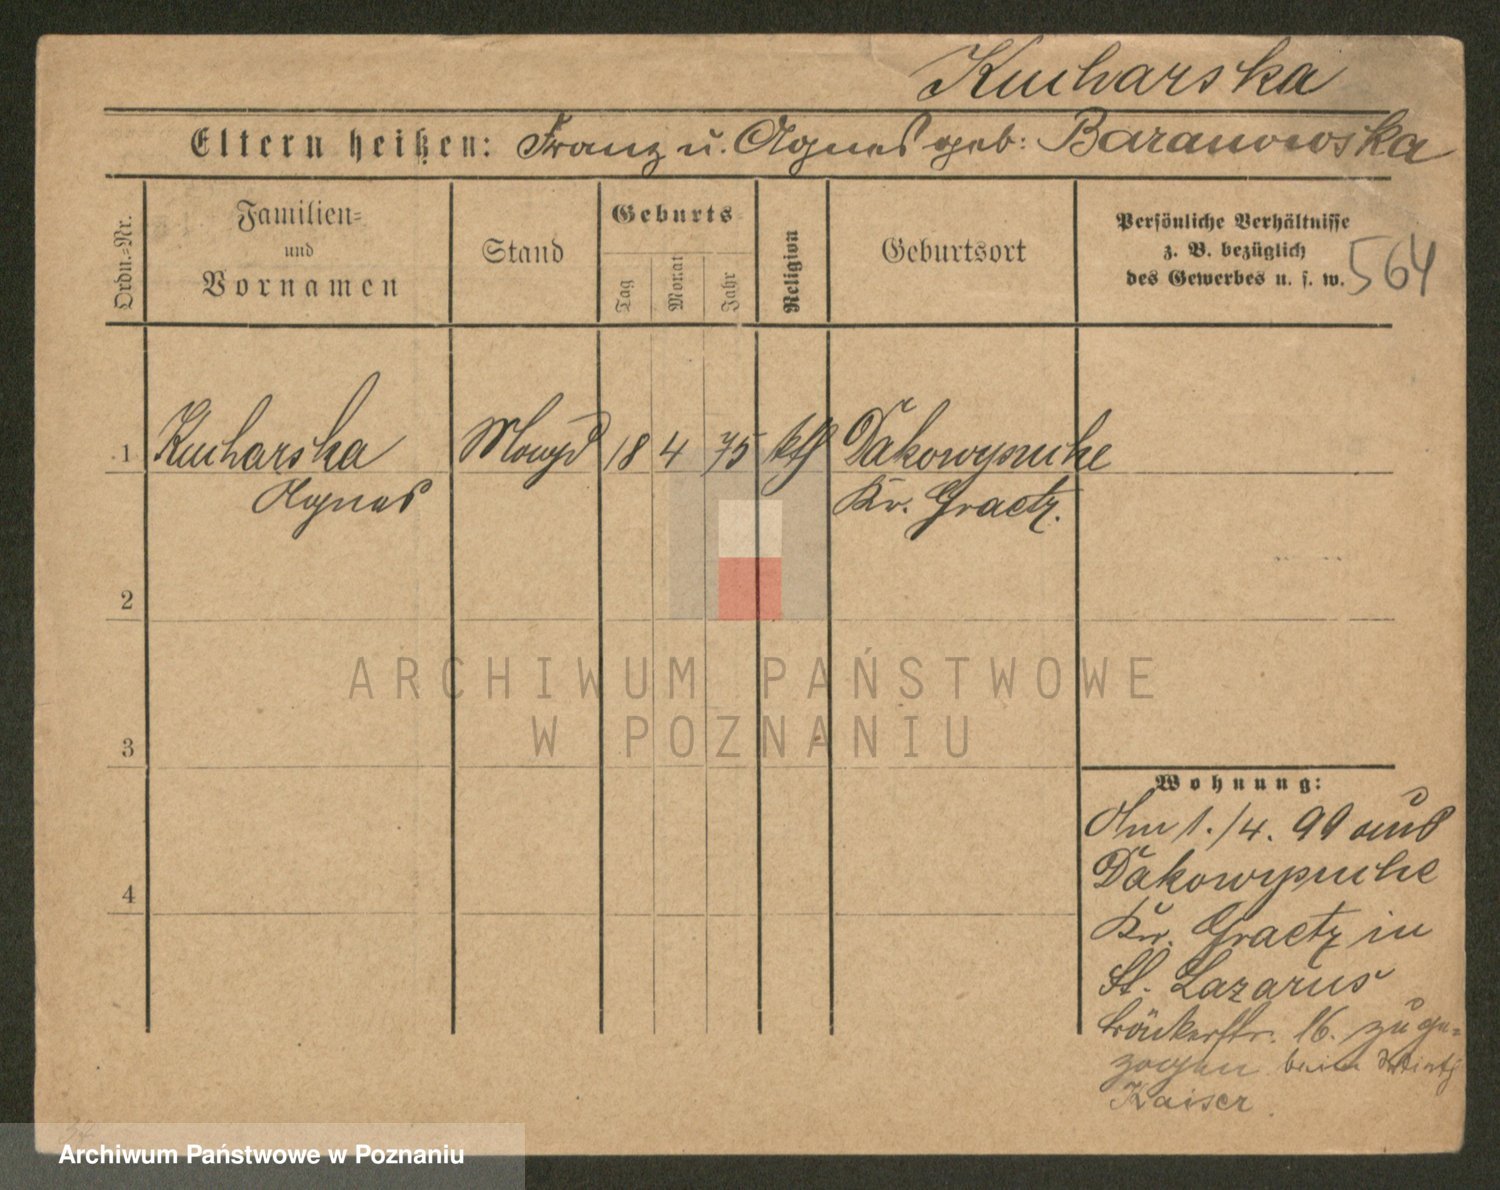 Kucharska
Eltern heißen: Franz u. Agnes geb: Baranowska
Ordn.-Nr.
Familien-
und
Vornamen
Stand
Geburts
Tag
Monat
Jahr
Religion
Geburtsort
Persönliche Verhältnisse
z. B. bezüglich
des Gewerbes u. s. w.
564
1 Kucharska Magd 18 4 75 kth Dakowysuche
Agnes Kr. Graetz.
2
3
4
ARCHIWUM PAŃSTWOWE
W POZNANIU
Wohnung:
Am 1./4. 99 aus
Dakowysuche
Kr. Graetz in
St. Lazarus
16. zuge=
zogen beim
Kaiser.
Archiwum Państwowe w Poznaniu